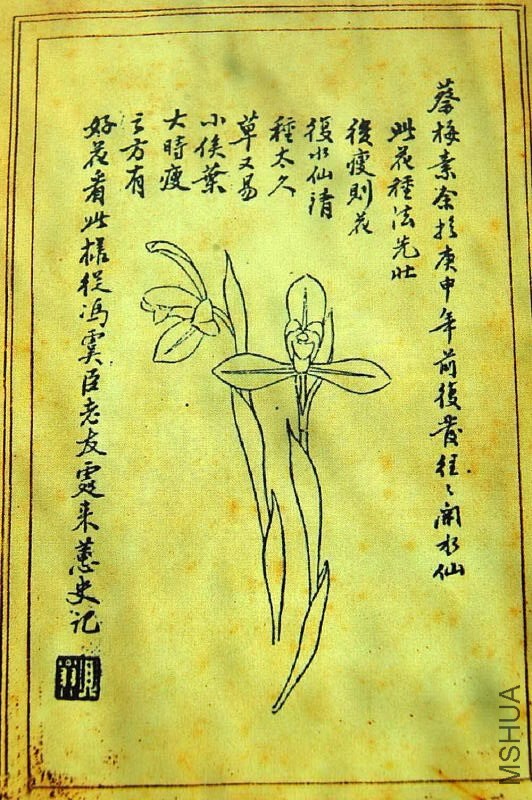 蔡梅素余於庚申年前後發往々開水仙
此花種法先壯
後瘦則花
復水仙請
種太久
草又易
小俟葉
大時瘦
之方有
好花看此樣從馮雲臣老友處来蕙史记
MSHUA